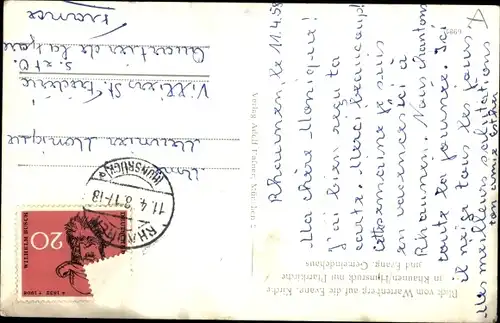 Rhaunen, le 11.4.58
Ma chère Monique!
J'ai bien reçu ta
carte. Merci beaucoup!
Cette semaine je suis
en vacances ici à
Rhaunen. Nous chantons
toute la journée. Ici
il neige tous les jours.
Mes meilleures salutations
ton amie
Monique
Villiers St. Frédéric
S. et O.
Quartier de la gare
France
Blick vom Wartenberg auf die Evang. Kirche
in Rhaunen/Hunsrück mit Pfarrkirche
und Evang. Gemeindehaus
RHAUNEN
(HUNSRÜCK)
11.4.58.17-18
DEUTSCHE
20
WILHELM BUSCH
* 1832 † 1908